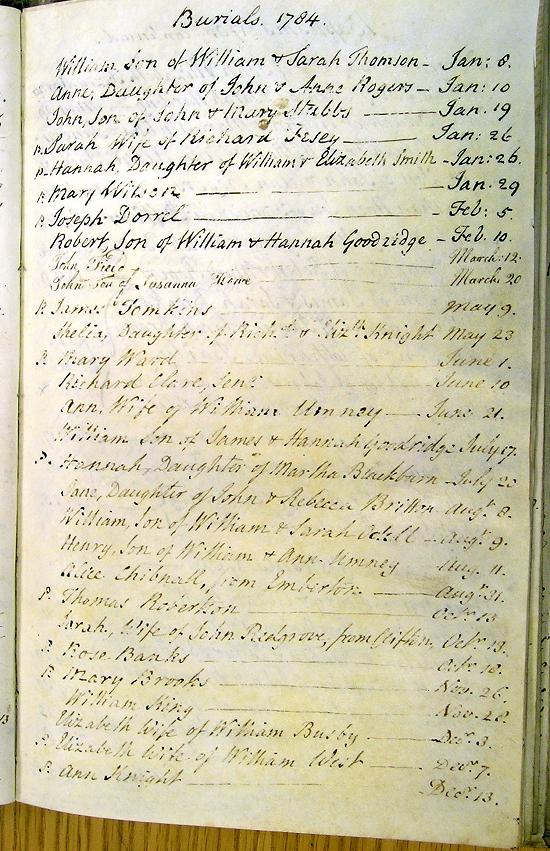 Burials. 1784.
William, Son of William & Sarah Thomson - Jan: 8.
Anne, Daughter of John & Anne Rogers - Jan: 10
John, Son of John & Mary Stubbs - Jan. 19
P. Sarah Wife of Richard Fesey - Jan: 26
P. Hannah, Daughter of William & Elizabeth Smith - Jan: 26.
P. Mary Wilson - Jan. 29
P. Joseph Dorrel - Feb: 5.
Robert, Son of William & Hannah Goodridge - Feb. 10.
John Field March: 12.
John Son of Susanna March: 20
P. James Tomkins - May 9.
Daughter of Richd. & Elizth. Knight May 23
P. Mary Ward June 1.
Richard Clare, Senr. June 10
Ann, Wife of William Umney - June 21.
William Son of James & Hannah Goodridge July 17.
P. Hannah, Daughter of Martha Blackburn - July 20
Jane, Daughter of John & Rebecca Britton Augt. 8.
William, Son of William & Sarah Odell - Augt. 9.
Henry, Son of William & Ann Umney Aug. 11.
Alice Chibnall, from Emberton - Augt. 31.
P. Thomas Robertson - Octr. 15
Sarah, Wife of John Redgrove, from Clifton, Octr. 13.
P. Rose Banks - Octr. 18.
P. Mary Brooks - Nov. 26.
William King - Nov. 28.
Elizabeth Wife of William Busby - Decr. 3.
P. Elizabeth Wife of William West - Decr. 7.
P. Ann Knight - Decr. 13.